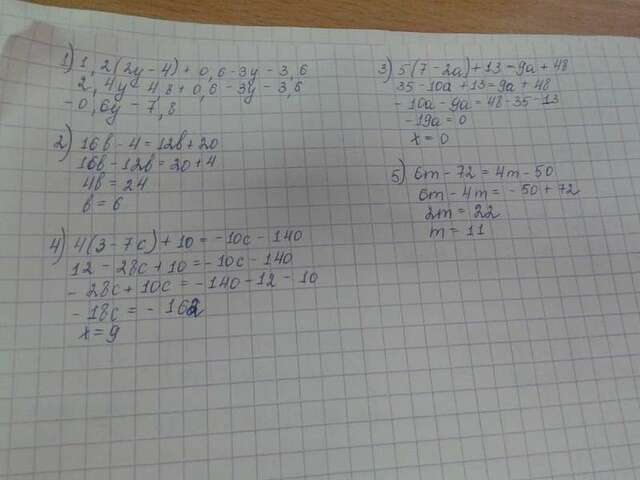 1) 1,2(2y-4)+0,6-3y-3,6
2,4y-4,8+0,6-3y-3,6
-0,6y-7,8
2) 16b-4=12b+20
16b-12b=20+4
4b=24
b=6
4) 4(3-7c)+10=-10c-140
12-28c+10=-10c-140
-28c+10c=-140-12-10
-18c=-162
x=9
3) 5(7-2a)+13=9a+48
35-10a+13=9a+48
-10a-9a=48-35-13
-19a=0
x=0
5) 6m-72=4m-50
6m-4m=-50+72
2m=22
m=11